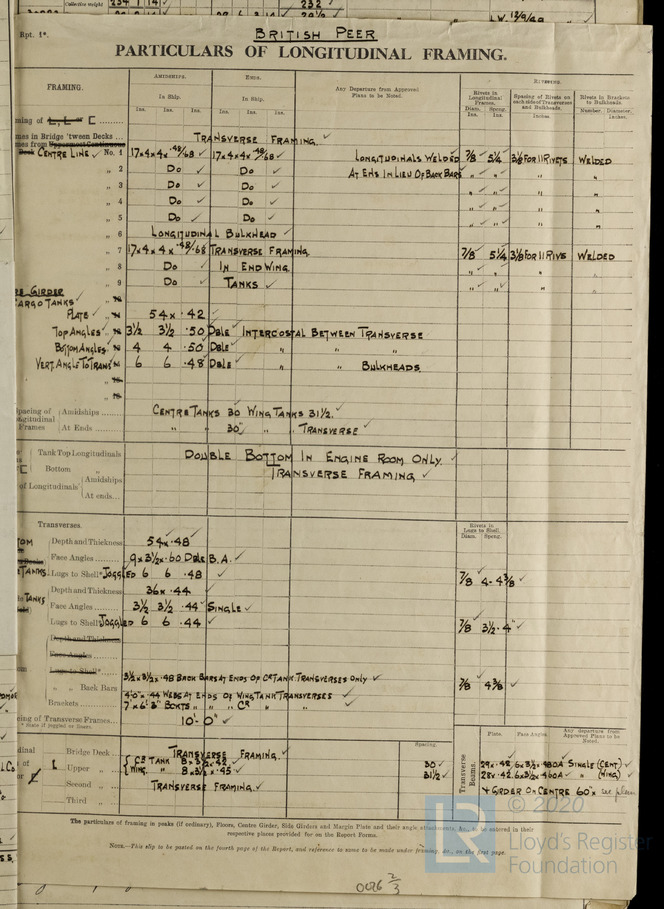 Collective weight 234 1 14 232
L.W. 12/9/49
Rpt. 1*. BRITISH PEER
PARTICULARS OF LONGITUDINAL FRAMING.
FRAMING. AMIDSHIPS. ENDS. Any Departure from Approved Plans to be Noted. RIVETING.
In Ship. In Ship. Rivets in Longitudinal Frames. Spacing of Rivets on each side of Transverses and Bulkheads. Rivets in Brackets to Bulkheads.
Ins. Ins. Ins. Ins. Ins. Ins. Diam. Ins. Spcng. Ins. Inches. Number. Diameter, Inches.
ming of L, L or [
mes in Bridge 'tween Decks ... TRANSVERSE FRAMING. ✓
mes from Uppermost Continuous
Deck CENTRE LINE ✓ No. 1 17x4x4x.48/.68 ✓ 17x4x4x.48/.68 ✓ LONGITUDINALS WELDED 7/8 5 1/4 3 1/8 FOR 11 RIVETS WELDED
„ 2 DO ✓ DO ✓ AT ENDS IN LIEU OF BACK BARS „ „ „ „
„ 3 DO ✓ DO ✓ „ „ „ „
„ 4 DO ✓ DO ✓ „ „ „ „
„ 5 DO ✓ DO ✓ „ „ „ „
„ 6 LONGITUDINAL BULKHEAD ✓
„ 7 17x4x4x.48/.68 TRANSVERSE FRAMING. 7/8 5 1/4 3 1/8 FOR 11 RIVS WELDED
„ 8 DO ✓ IN END WING „ „ „ „
„ 9 DO ✓ TANKS ✓ „ „ „ „
DE GIRDER
CARGO TANKS ✓
PLATE ✓ 54 x .42 ✓
TOP ANGLES ✓ 3 1/2 3 1/2 .50 DBLE INTERCOSTAL BETWEEN TRANSVERSE
BOTTOM ANGLES ✓ 4 4 .50 DBLE „ „ „
VERT. ANGLE TO TRANS 6 6 .48 DBLE „ „ BULKHEADS
Spacing of Longitudinal Frames Amidships ........ CENTRE TANKS 30 WING TANKS 31 1/2. ✓
At Ends ........ „ „ 30" „ TRANSVERSE ✓
Tank Top Longitudinals DOUBLE BOTTOM IN ENGINE ROOM ONLY. ✓
Bottom „ TRANSVERSE FRAMING ✓
of Longitudinals Amidships
At ends...
Transverses. Rivets in Lugs to Shell. Diam. Spcng.
TOM Depth and Thickness 54 x .48 ✓
Face Angles ........ 9 x 3 1/2 x .60 DBLE B.A. ✓
TANKS Lugs to Shell* JOGGLED 6 6 .48 ✓ 7/8 4 - 4 3/8 ✓
Depth and Thickness 36 x .44 ✓
TANKS Face Angles ........ 3 1/2 3 1/2 .44 SINGLE ✓
Lugs to Shell JOGGLED 6 6 .44 ✓ 7/8 3 1/2 . 4" ✓
Depth and Thickness
Face Angles
Lugs to Shell*
„ „ Back Bars 3 1/2 x 3 1/2 x .48 BACK BARS AT ENDS OF CR TANK TRANSVERSES ONLY ✓ 7/8 4 3/8 ✓
4'-0" x .44 WEBS AT ENDS OF WING TANK TRANSVERSES ✓
Brackets ........
cing of Transverse Frames... 10' - 0" ✓
* State if joggled or liners.
Spacing. Plate. Face Angles. Any departure from Approved Plans to be Noted.
Bridge Deck ... TRANSVERSE FRAMING. ✓ Transverse Beams.
Upper „ ... { CE TANK 8 x 3 1/2 x .42 ✓ 30 ✓ 29 x .42 . 6 x 3 1/2 x .480A SINGLE (CENT) ✓
WING. „ 8 x 3 1/2 x .45 ✓ 31 1/2 ✓ 28 x .42 . 6 x 3 1/2 x .460A „ (WING) ✓
Second „ ... TRANSVERSE FRAMING. ✓ & GIRDER ON CENTRE 60" x see plan
Third „ ...
The particulars of framing in peaks (if ordinary), Floors, Centre Girder, Side Girders and Margin Plate and their angle attachments, &c., to be entered in their
respective places provided for on the Report Forms.
NOTE.—This slip to be pasted on the fourth page of the Report, and reference to same to be made under framing, &c., on the first page.
0026 2/3
© 2020
LR Lloyd's Register
Foundation